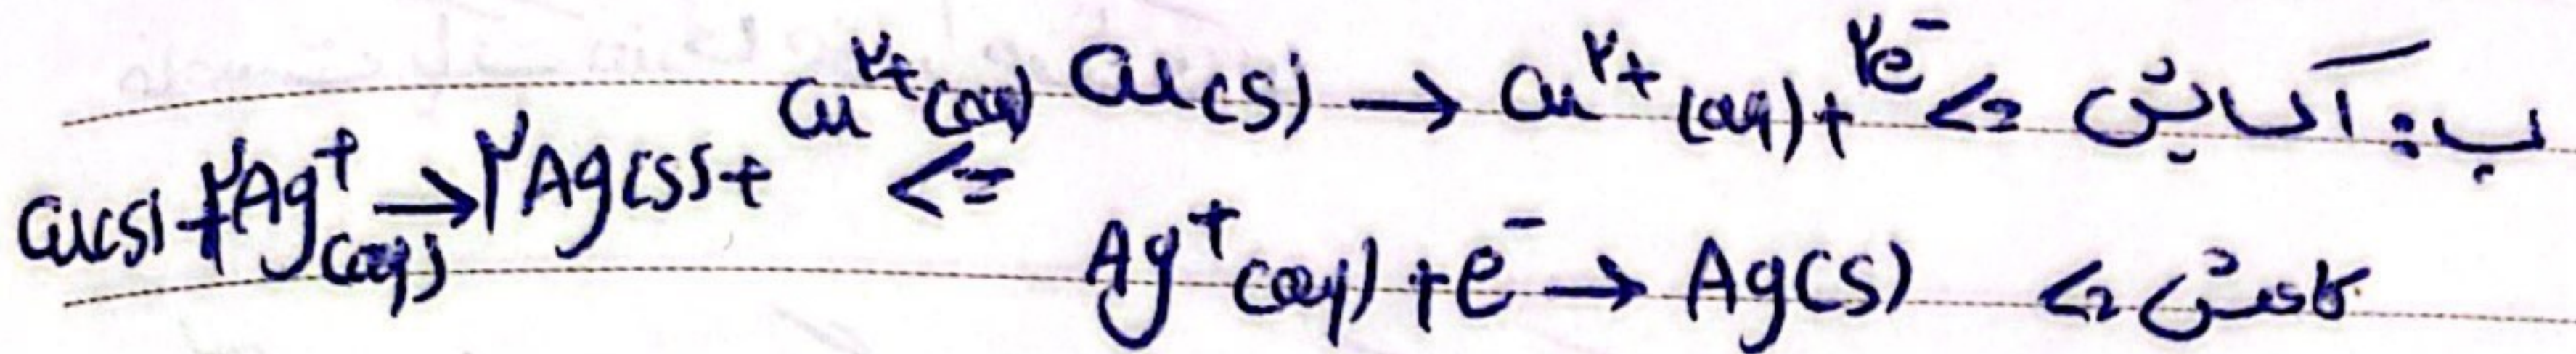 ب: اکسایش => Cu(s) → Cu²⁺(aq) + ۲e⁻
کاهش => Ag⁺(aq) + e⁻ → Ag(s)
=> Cu(s) + ۲Ag⁺(aq) → ۲Ag(s) + Cu²⁺(aq)